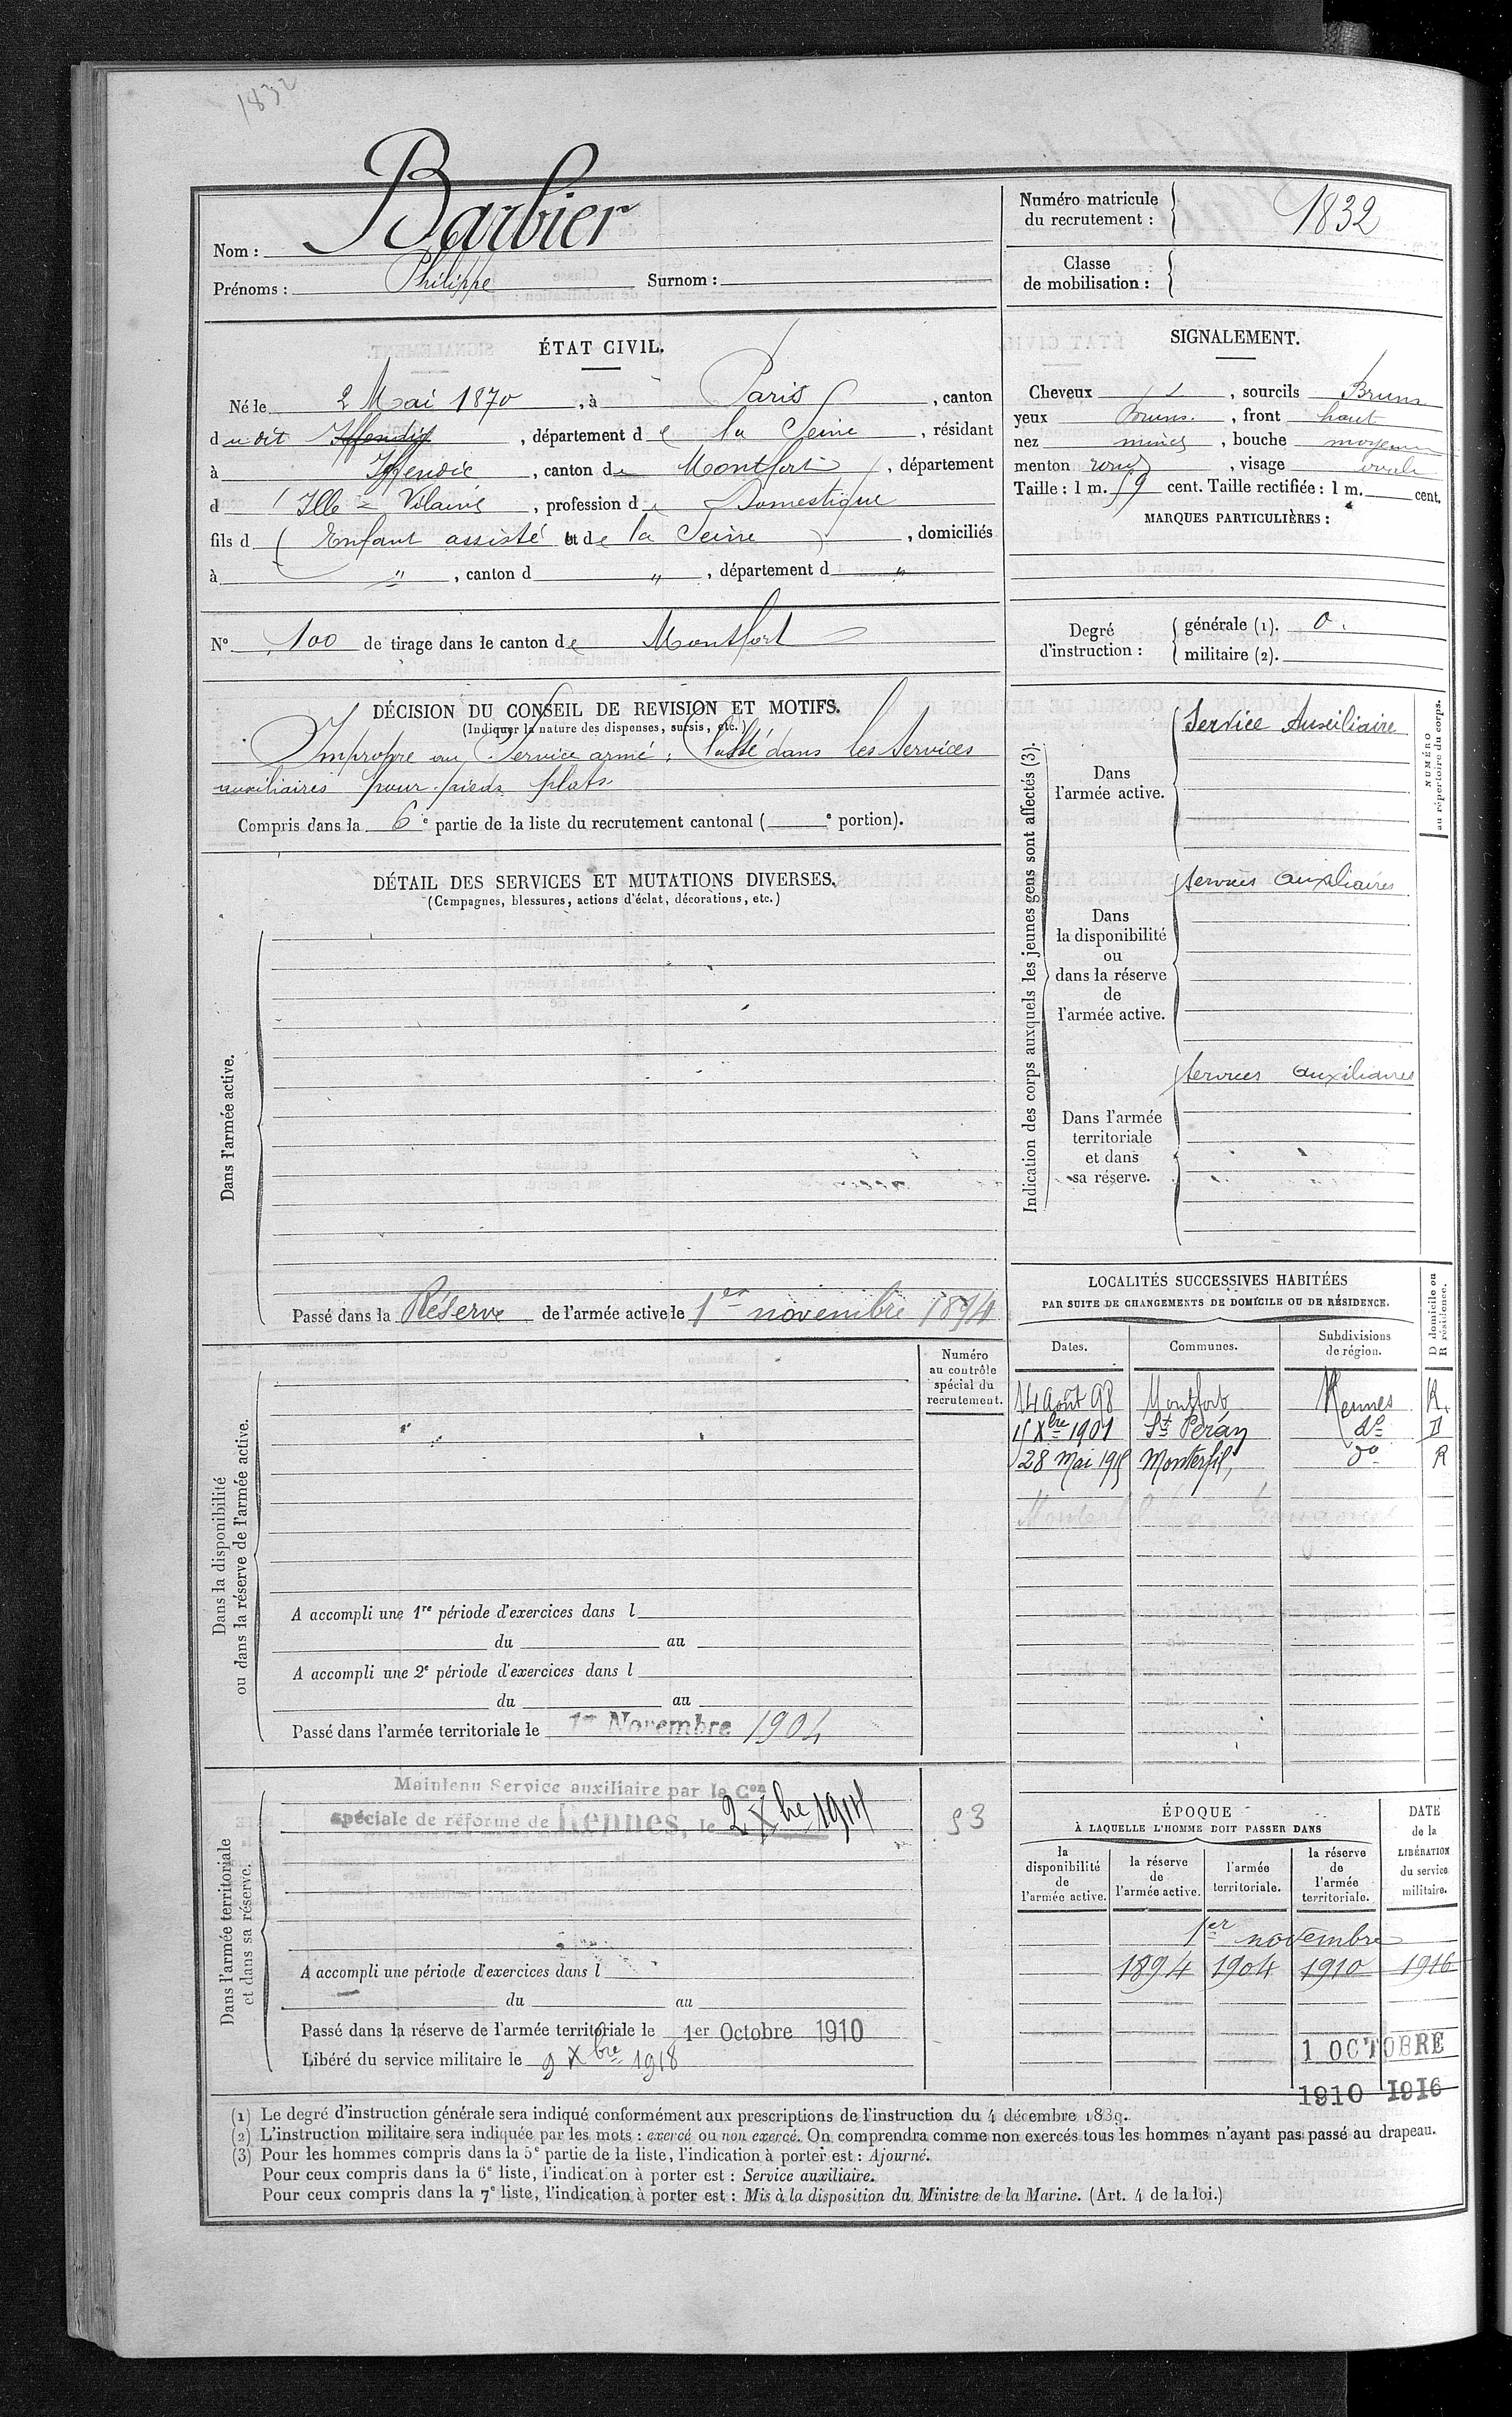 1832
Nom : Barbier
Prénoms : Philippe Surnom :
Numéro matricule
du recrutement : 1832
Classe
de mobilisation :
ÉTAT CIVIL.
Né le 2 Mai 1870, à Paris, canton
dudit Iffendic, département de la Seine, résidant
à Iffendic, canton de Montfort, département
d'Ille-Vilaine, profession de Domestique
fils d (Enfant assisté et de la Seine), domiciliés
à " , canton d " , département d "
SIGNALEMENT.
Cheveux , sourcils Bruns
yeux Bruns, front haut
nez mince, bouche moyenne
menton rond, visage ovale
Taille : 1 m. 59 cent. Taille rectifiée : 1 m. cent.
MARQUES PARTICULIÈRES :
N° 100 de tirage dans le canton de Montfort
Degré
d'instruction :
générale (1). 0.
militaire (2).
DÉCISION DU CONSEIL DE REVISION ET MOTIFS.
(Indiquer la nature des dispenses, sursis, etc.)
Impropre au Service armé ; Classé dans les Services
auxiliaires pour pieds plats.
Compris dans la 6e partie de la liste du recrutement cantonal ( e portion).
DÉTAIL DES SERVICES ET MUTATIONS DIVERSES.
(Campagnes, blessures, actions d'éclat, décorations, etc.)
Dans l'armée active.
Passé dans la Réserve de l'armée active le 1er novembre 1894
Indication des corps auxquels les jeunes gens sont affectés (3).
NUMÉRO
au répertoire du corps.
Dans
l'armée active.
Service Auxiliaire
Dans
la disponibilité
ou
dans la réserve
de
l'armée active.
Services auxiliaires
Dans l'armée
territoriale
et dans
sa réserve.
Services auxiliaires
LOCALITÉS SUCCESSIVES HABITÉES
PAR SUITE DE CHANGEMENTS DE DOMICILE OU DE RÉSIDENCE.
D domicile ou
R résidence.
Dates. Communes. Subdivisions
de région.
14 Août 98 Montfort Rennes R.
15 Xbre 1901 St Péran do D
28 Mai 1915 Monterfil, do R
Monterfil
Numéro
au contrôle
spécial du
recrutement.
Dans la disponibilité
ou dans la réserve de l'armée active.
A accompli une 1re période d'exercices dans l
du au
A accompli une 2e période d'exercices dans l
du au
Passé dans l'armée territoriale le 1er Novembre 1904
Dans l'armée territoriale
et dans sa réserve.
Maintenu Service auxiliaire par la Con
spéciale de réforme de Rennes, le 2 Xbre 1914
53
A accompli une période d'exercices dans l
du au
Passé dans la réserve de l'armée territoriale le 1er Octobre 1910
Libéré du service militaire le 9 Xbre 1918
ÉPOQUE
À LAQUELLE L'HOMME DOIT PASSER DANS
DATE
de la
LIBÉRATION
du service
militaire.
la
disponibilité
de
l'armée active.
la réserve
de
l'armée active.
l'armée
territoriale.
la réserve
de
l'armée
territoriale.
1er novembre
1894 1904 1910 1916
1 OCTOBRE
1910 1916
(1) Le degré d'instruction générale sera indiqué conformément aux prescriptions de l'instruction du 4 décembre 1889.
(2) L'instruction militaire sera indiquée par les mots : exercé ou non exercé. On comprendra comme non exercés tous les hommes n'ayant pas passé au drapeau.
(3) Pour les hommes compris dans la 5e partie de la liste, l'indication à porter est : Ajourné.
Pour ceux compris dans la 6e liste, l'indication à porter est : Service auxiliaire.
Pour ceux compris dans la 7e liste, l'indication à porter est : Mis à la disposition du Ministre de la Marine. (Art. 4 de la loi.)